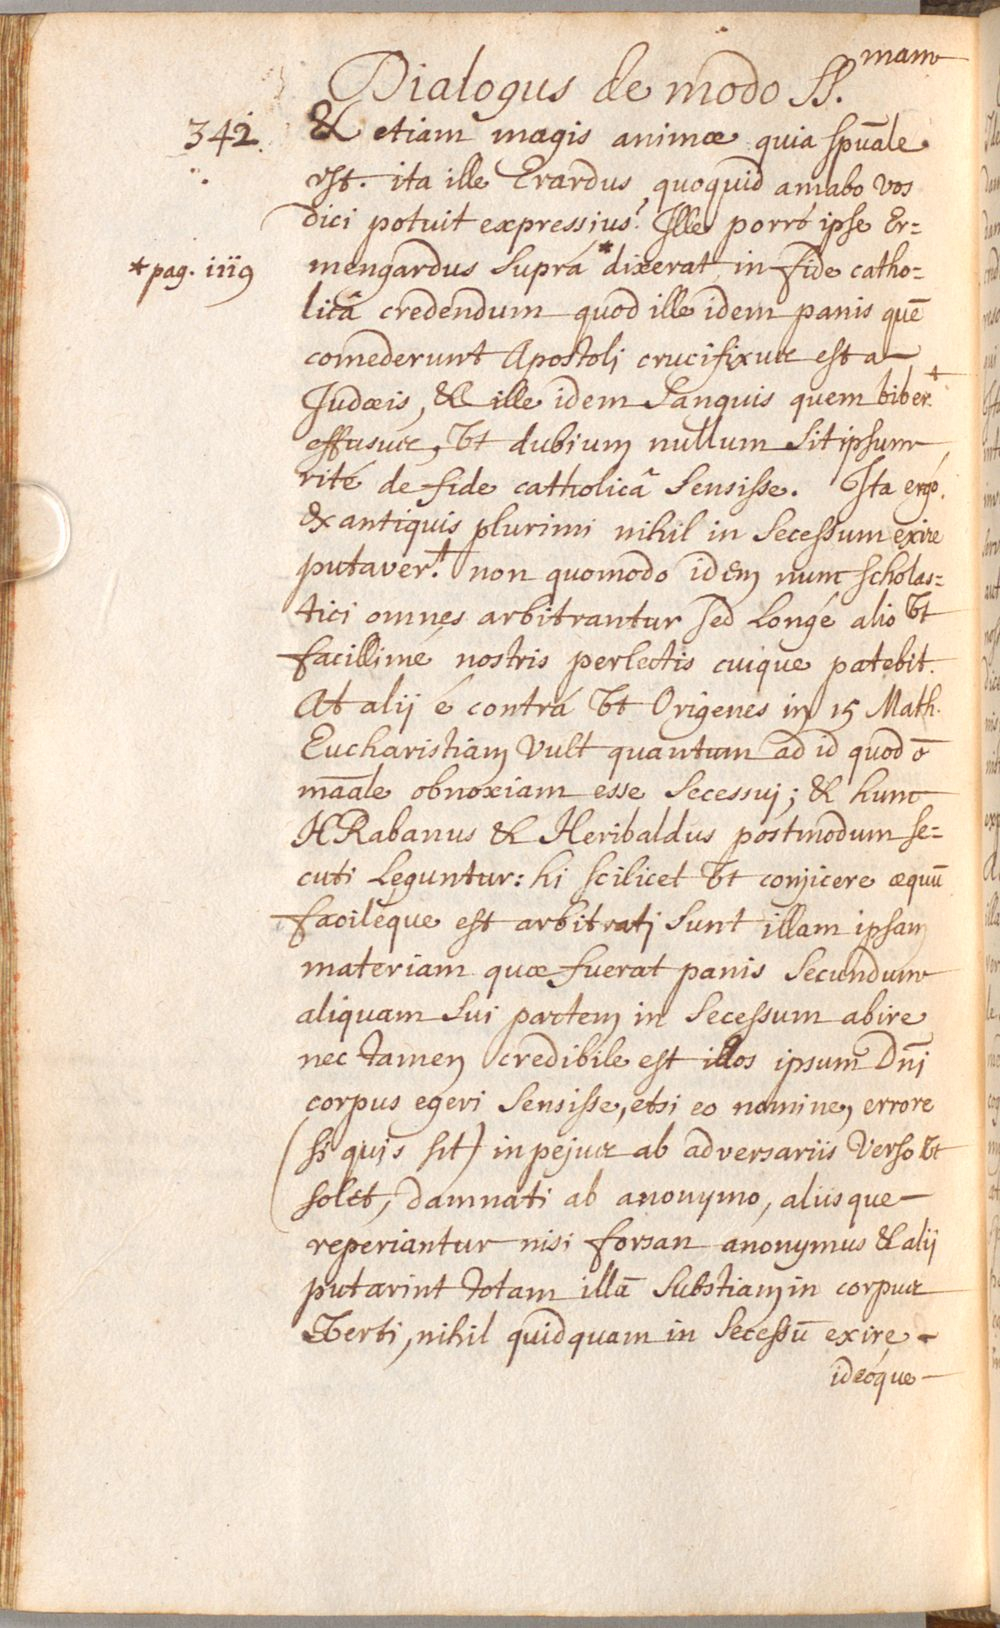 Dialogus de modo SS.mam
342.
& etiam magis animæ quia spūale
est. ita ille Erardus, quo quid amabo vos
dici potuit expressius? Ille porró ipse Er=
*pag. 1119
mengardus Suprá *dixerat in fide catho=
licâ credendum quod ille idem panis quē
comederunt Apostoli crucifixus est a
Judæis, & ille idem Sanguis quem biber.t
effusus, Vt dubium nullum sit ipsum
rité de fide catholicâ Sensisse. Ita ergó
ex antiquis plurimi nihil in Secessum exire
putaver.t non quomodo idem nunc scholas=
tici omnes arbitrantur sed Longé alio Vt
facillimé nostris perlectis cuique patebit.
At alij é contrá Vt Origenes in 15 Math.
Eucharistiam Vult quantum ad id quod ō
māale obnoxiam esse Secessui; & hunc
HRabanus & Heribaldus postmodum se=
cuti Leguntur: hi scilicet Vt conjicere æquū
facileque est arbitrati Sunt illam ipsam
materiam quæ fuerat panis Secundum
aliquam Sui partem in Secessum abire
nec tamen credibile est illos ipsum Dn̄i
corpus egeri Sensisse, etsi eo nomine, errore
(si quis sit) in pejus ab adversariis Verso Vt
solet, damnati ab anonymo, aliisque
reperiantur nisi forsan anonymus & alij
putarint totam illā Substiam in corpus
Verti, nihil quidquam in Secessū exire
ideóque